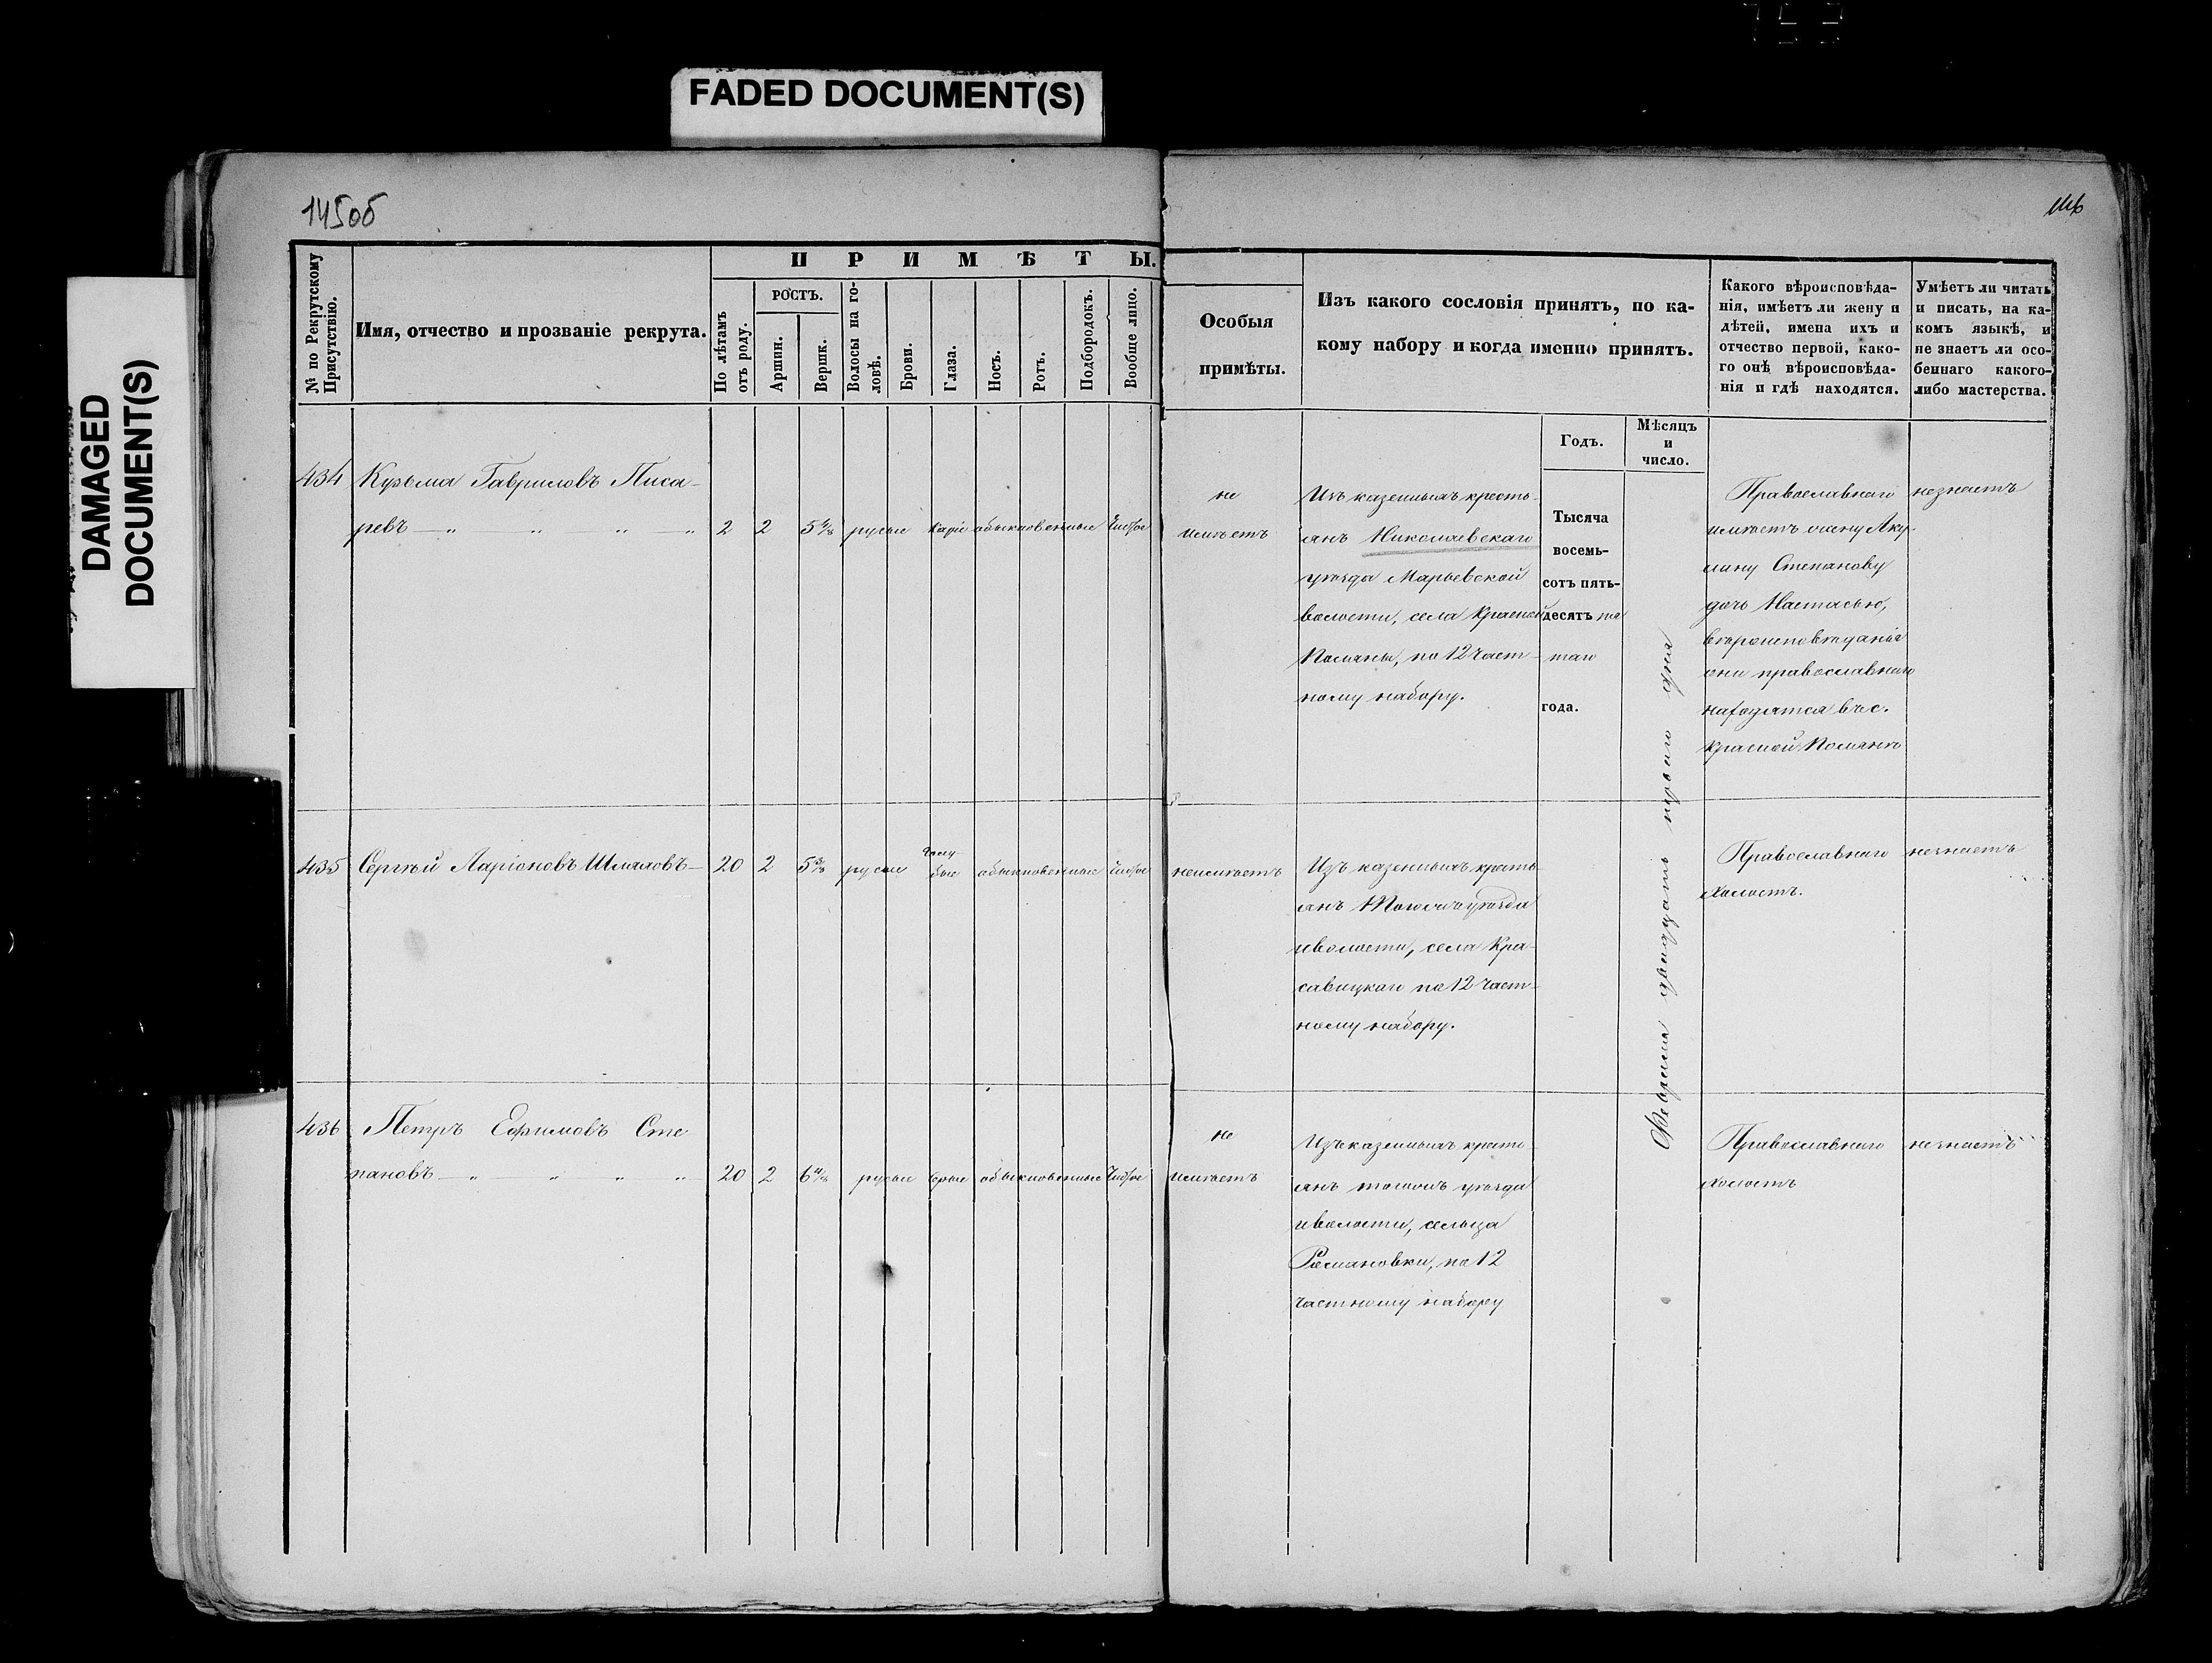 FADED DOCUMENT(S)
DAMAGED
DOCUMENT(S)
145об
146
№ по Рекрутскому
Присутствію.
Имя, отчество и прозваніе рекрута.
ПРИМѢТЫ.
По лѣтамъ
отъ роду.
РОСТЪ.
Аршин.
Вершк.
Волосы на го-
ловѣ.
Брови.
Глаза.
Носъ.
Ротъ.
Подбородокъ.
Вообще лицо.
Особыя
примѣты.
Изъ какого сословія принятъ, по ка-
кому набору и когда именно принятъ.
Какого вѣроисповѣда-
нія, имѣетъ ли жену и
дѣтей, имена ихъ и
отчество первой, како-
го онѣ вѣроисповѣда-
нія и гдѣ находятся.
Умѣетъ ли читать
и писать, на ка-
комъ языкѣ, и
не знаетъ ли осо-
беннаго какого-
либо мастерства.
Годъ.
Мѣсяцъ
и
число.
434
Кузьма Гавриловъ Писа-
ревъ — „ „ „ — „
2 2 5 4/8 русые каріе обыкновенные чистое
не
имѣетъ
Изъ казенныхъ кресть-
янъ Николаевскаго
уѣзда Марьевской
волости, села Красной
Поляны, по 12 част-
ному набору.
Тысяча
восемь-
сотъ пять-
десятъ пя
таго
года.
Февраля двадцать перваго дня
Православнаго
имѣетъ жену Аку-
лину Степанову
дочь Настасью,
вѣроисповѣданія
они православнаго
находятся въ с.
Красной Полянѣ
незнаетъ
435
Сергѣй Ларіоновъ Шмаловъ —
20 2 5 3/8 русые голу-
бые обыкновенные чистое
неимѣетъ
Изъ казенныхъ кресть-
янъ Тогожъ уѣзда
и волости, села Кра-
савицкаго по 12 част-
ному набору.
Православнаго
холостъ.
незнаетъ
436
Петръ Ефимовъ Сте
пановъ — „ „ „ „
20 2 6 4/8 русые серые обыкновенные чистое
не
имѣетъ
Изъ казенныхъ кресть
янъ тогожъ уѣзда
и волости, сельца
Романовки, по 12
частному набору
Православнаго
холостъ
незнаетъ